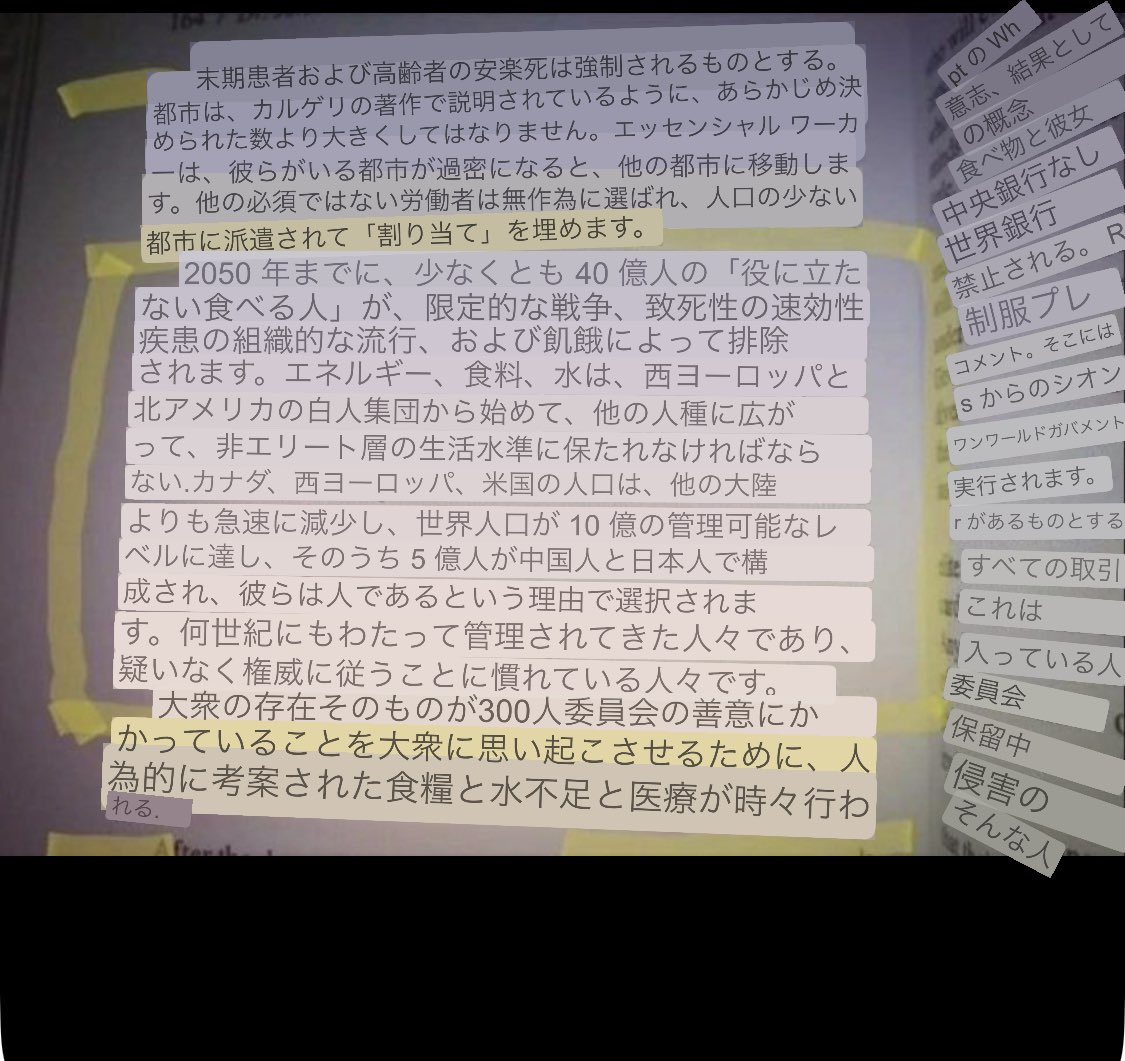 末期患者および高齢者の安楽死は強制されるものとする。
都市は、カルゲリの著作で説明されているように、あらかじめ決
められた数より大きくしてはなりません。エッセンシャル ワーカ
ーは、彼らがいる都市が過密になると、他の都市に移動しま
す。他の必須ではない労働者は無作為に選ばれ、人口の少ない
都市に派遣されて「割り当て」を埋めます。
2050 年までに、少なくとも 40 億人の「役に立た
ない食べる人」が、限定的な戦争、致死性の速効性
疾患の組織的な流行、および飢餓によって排除
されます。エネルギー、食料、水は、西ヨーロッパと
北アメリカの白人集団から始めて、他の人種に広が
って、非エリート層の生活水準に保たれなければなら
ない.カナダ、西ヨーロッパ、米国の人口は、他の大陸
よりも急速に減少し、世界人口が 10 億の管理可能なレ
ベルに達し、そのうち 5 億人が中国人と日本人で構
成され、彼らは人であるという理由で選択されま
す。何世紀にもわたって管理されてきた人々であり、
疑いなく権威に従うことに慣れている人々です。
大衆の存在そのものが300人委員会の善意にか
かっていることを大衆に思い起こさせるために、人
為的に考案された食糧と水不足と医療が時々行わ
れる.
After the
pt の Wh
意志、結果として
の概念
食べ物と彼女
中央銀行なし
世界銀行
禁止される。 R
制服プレ
コメント。そこには
s からのシオン
ワンワールドガバメント
実行されます。
r があるものとする
すべての取引
これは
入っている人
委員会
保留中
侵害の
そんな人